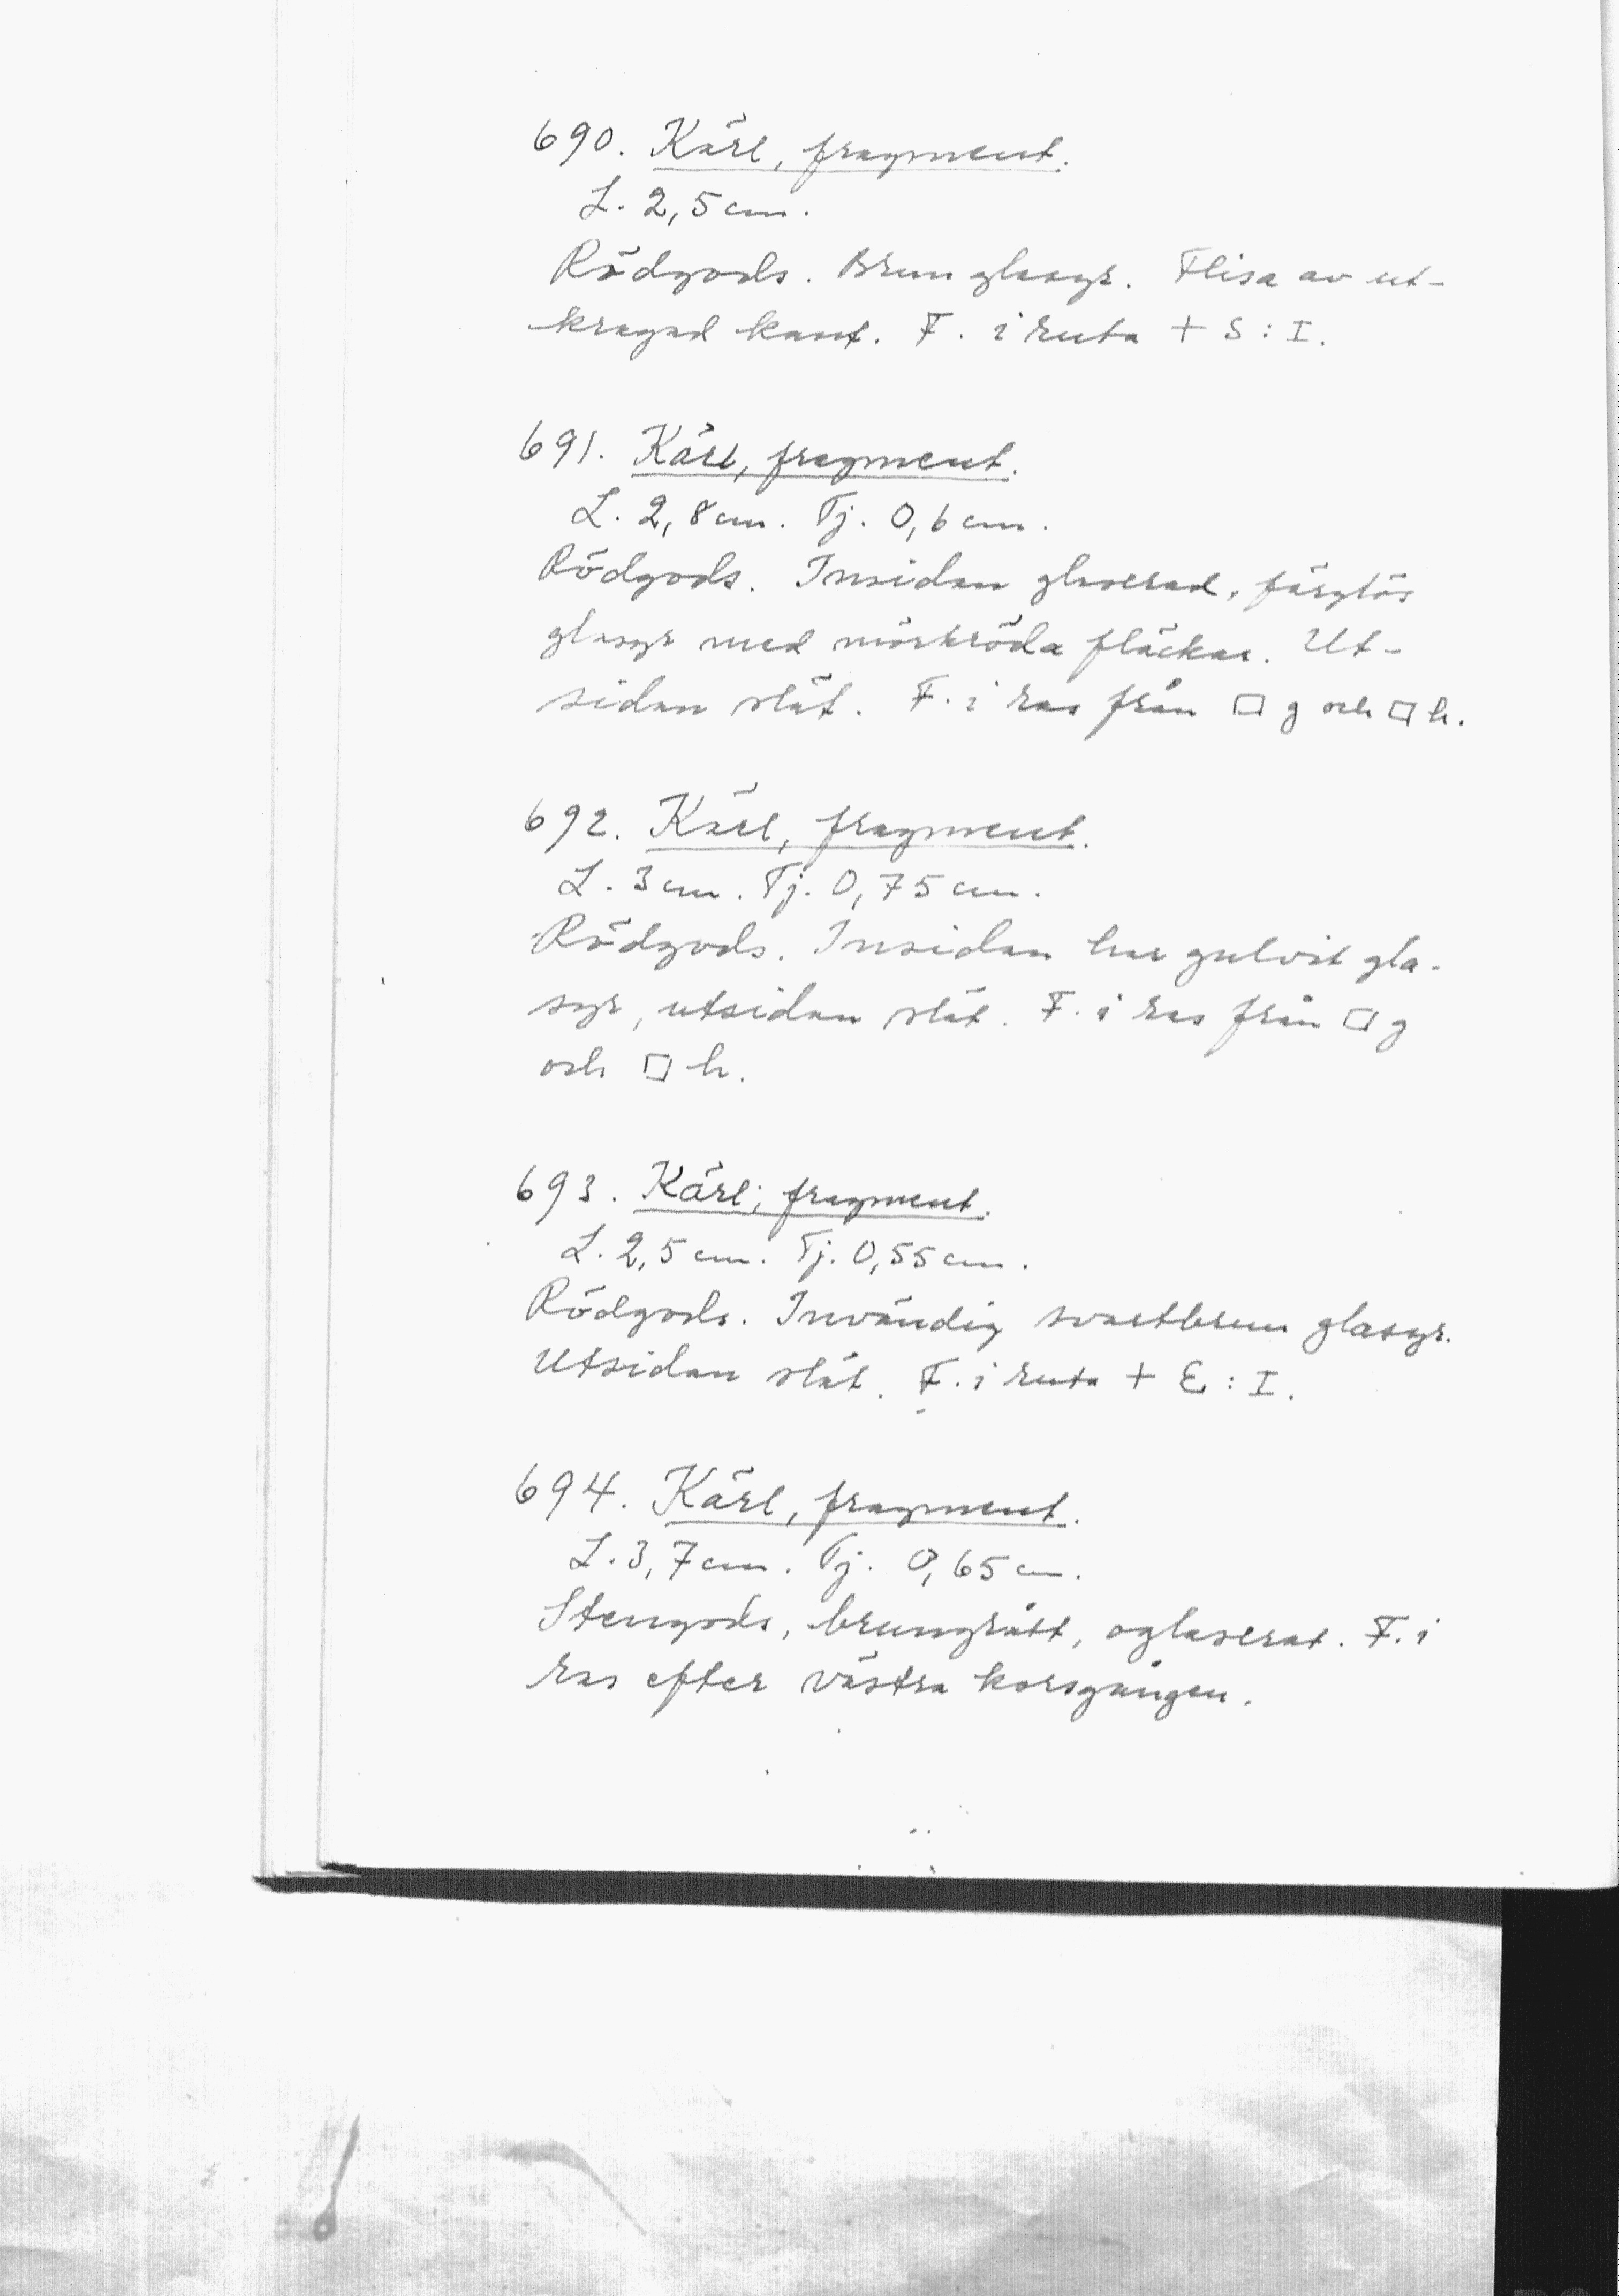 690. Kärl, fragment.
L. 2,5 cm.
Rödgods. Brun glasyr. Flisa av ut-
kragad kant. F. i ruta + S : I.
691. Kärl, fragment.
L. 2,8 cm. Tj. 0,6 cm.
Rödgods. Insidan glaserad, färglös
glasyr med mörkröda fläckar. Ut-
sidan slät. F. i ras från □ g och □ h.
692. Kärl, fragment.
L. 3 cm. Tj. 0,75 cm.
Rödgods. Insidan har gulvit gla-
syr, utsidan slät. F. i ras från □ g
och □ h.
693. Kärl, fragment.
L. 2,5 cm. Tj. 0,55 cm.
Rödgods. Invändig svartbrun glasyr.
Utsidan slät. F. i ruta + E : I.
694. Kärl, fragment.
L. 3,7 cm. Tj. 0,65 cm.
Stengods, brungrått, oglaserat. F. i
ras efter västra korsgången.